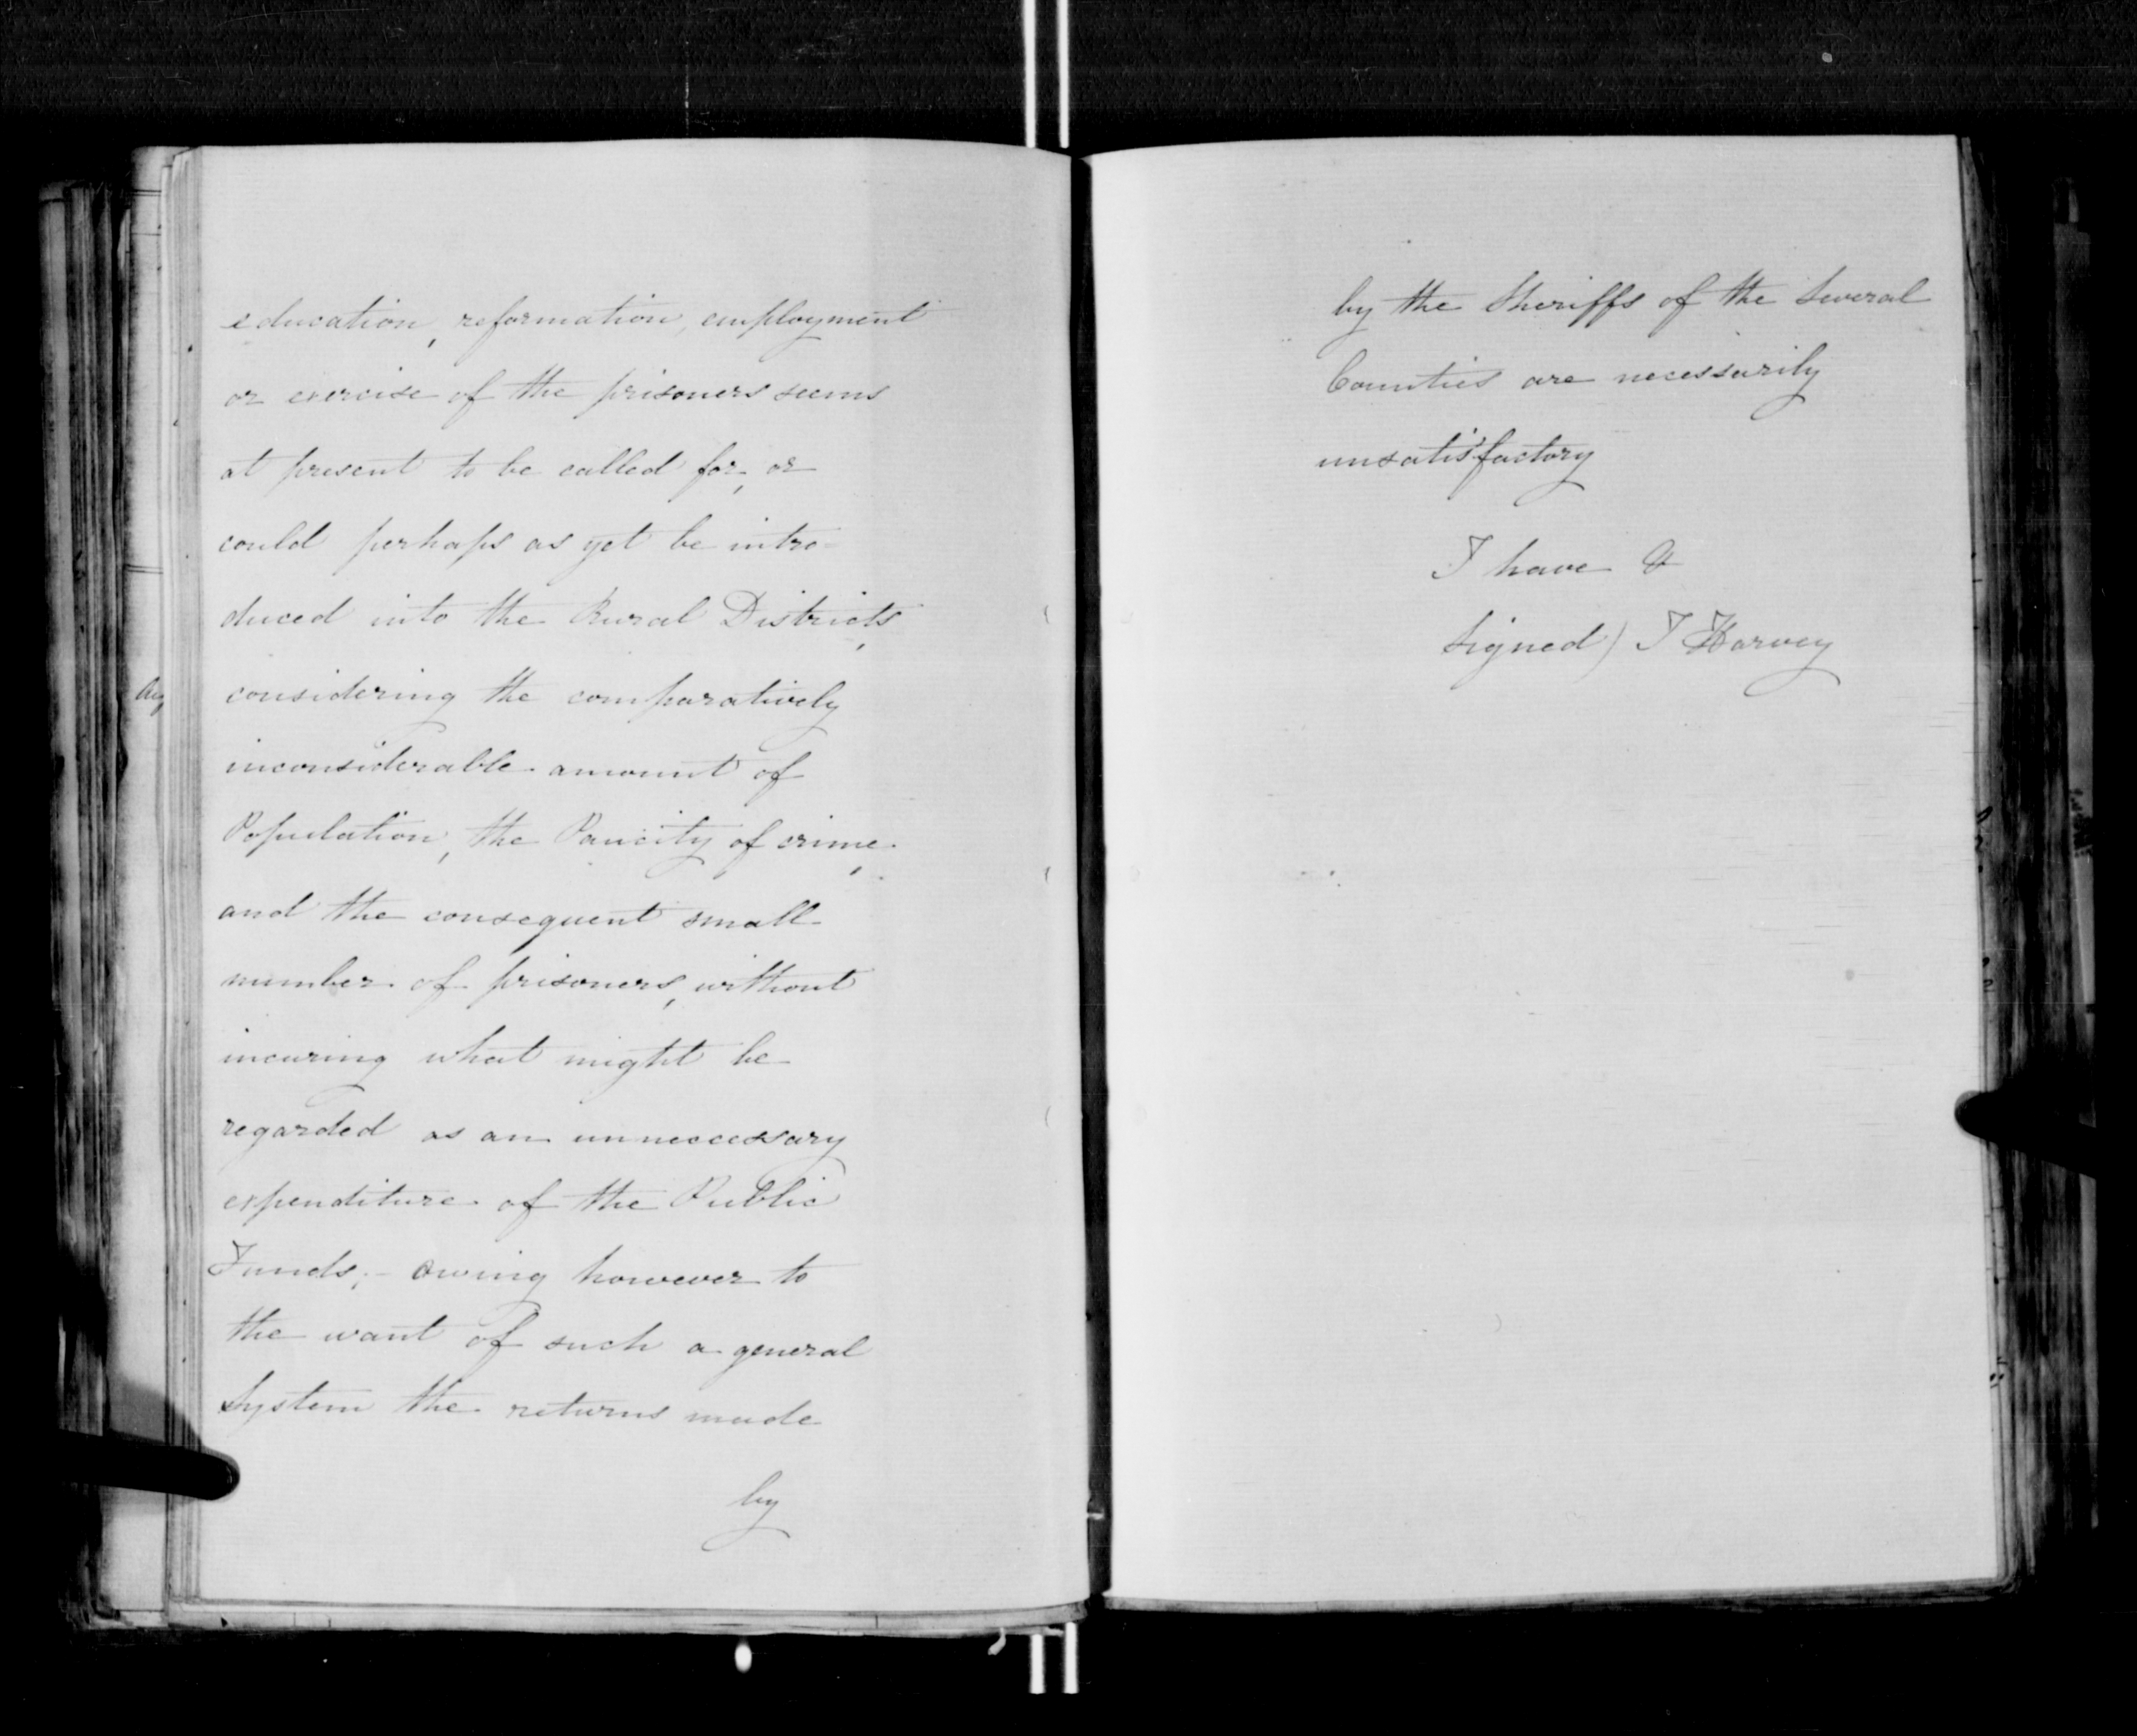 education, reformation, employment
or exercise of the prisoners seems
at present to be called for, or
could perhaps as yet be intro-
duced into the Rural Districts,
considering the comparatively
inconsiderable amount of
Population, the Paucity of crime,
and the consequent small
number of prisoners, without
incuring what might be
regarded as an unneccessary
expenditure of the Public
Funds;- owing however to
the want of such a general
System the returns made
by
by the Sheriffs of the Several
Counties are necessarily
unsatisfactory
I have &
Signed) J Harvey